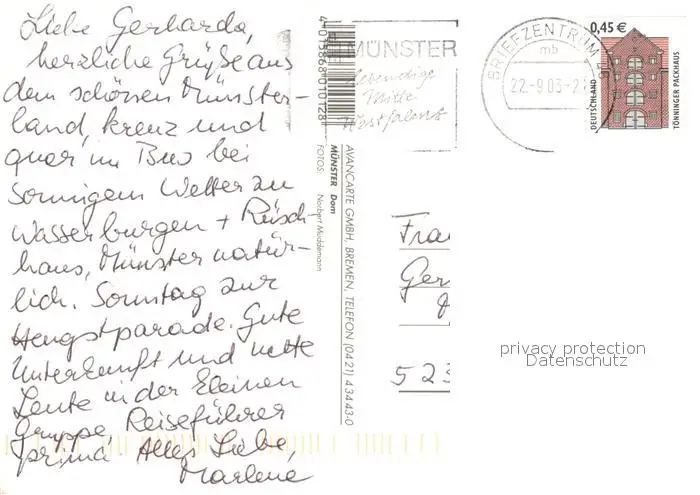 Liebe Gerharda,
herzliche Grüße aus
dem schönen Münster-
land, kreuz und
quer im Bus bei
sonnigem Wetter zu
Wasserburgen + Rüsch-
haus, Münster natür-
lich. Sonntag zur
Hengstparade. Gute
Unterkunft und nette
Leute in der kleinen
Gruppe, Reiseführer
prima Alles Liebe,
Marlene
4 015868 010128
MÜNSTER Dom
FOTOS: Norbert Muddemann
AVANCARTE GMBH, BREMEN, TELEFON (04 21) 4 34 43-0
MÜNSTER
lebendige
Mitte
Westfalens
BRIEFZENTRUM 48
mb
22.-9.03-2
0,45 €
DEUTSCHLAND
TÖNNINGER PACKHAUS
Frau
Ger
523
privacy protection
Datenschutz